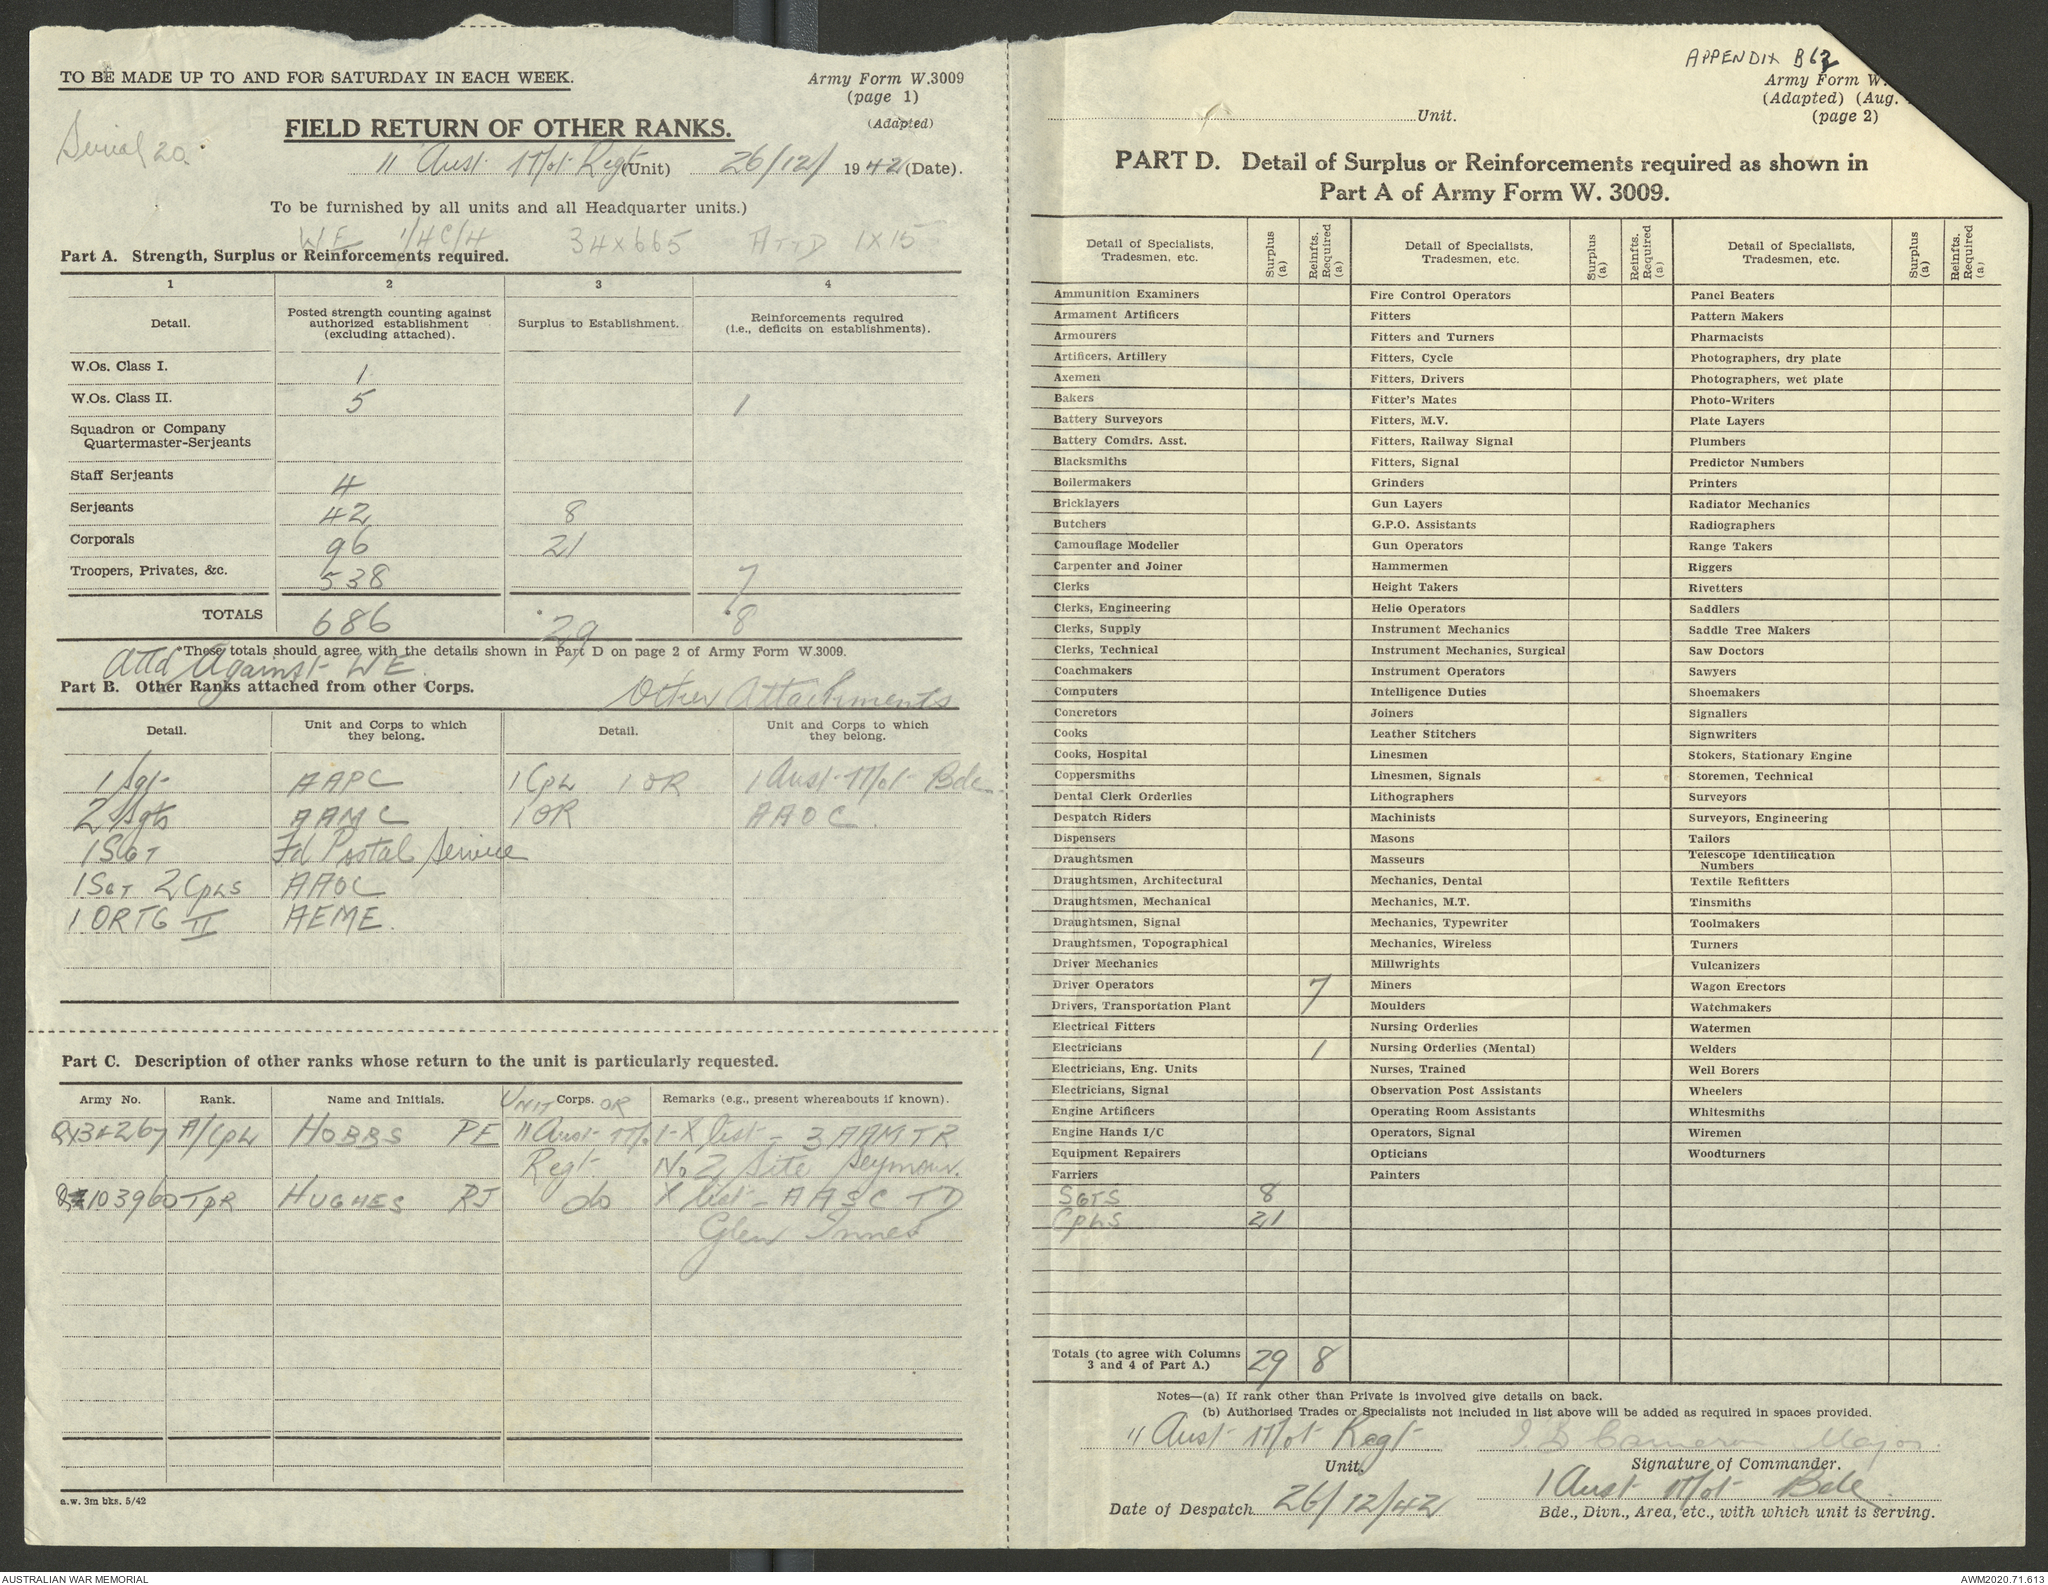 TO BE MADE UP TO AND FOR SATURDAY IN EACH WEEK.
Army Form W.3009
(page 1)
(Adapted)
Serial 20.
FIELD RETURN OF OTHER RANKS.
11 Aust Mot Regt (Unit) 26/12/ 1942 (Date).
To be furnished by all units and all Headquarter units.)
WE 1/4C/4 34 x 665 ATTD 1 x 15
Part A. Strength, Surplus or Reinforcements required.
1 2 3 4
Detail. Posted strength counting against authorized establishment (excluding attached). Surplus to Establishment. Reinforcements required (i.e., deficits on establishments).
W.Os. Class I. 1
W.Os. Class II. 5 1
Squadron or Company Quartermaster-Serjeants
Staff Serjeants 4
Serjeants 42 8
Corporals 96 21
Troopers, Privates, &c. 538 7
TOTALS 686 *29 *8
*These totals should agree with the details shown in Part D on page 2 of Army Form W.3009.
Attd Against WE.
Part B. Other Ranks attached from other Corps.
Other Attachments
Detail. Unit and Corps to which they belong. Detail. Unit and Corps to which they belong.
1 Sgt AAPC 1 Cpl 1 OR 1 Aust Mot Bde
2 Sgts AAMC 1 OR AAOC.
1 SGT Fd Postal Service
1 SGT 2 Cpls AAOC
1 ORTG II AEME.
Part C. Description of other ranks whose return to the unit is particularly requested.
Army No. Rank. Name and Initials. UNIT Corps. OR Remarks (e.g., present whereabouts if known).
QX34267 A/Cpl HOBBS PE 11 Aust Mot Regt X list - 3 AAMTR
No 2 Site Seymour.
103960 TPR HUGHES RJ do X list - AASC TD
Glen Innes
a.w. 3m bks. 5/42
APPENDIX B62
Army Form W.
(Adapted) (Aug.
(page 2)
Unit.
PART D. Detail of Surplus or Reinforcements required as shown in
Part A of Army Form W. 3009.
Detail of Specialists, Tradesmen, etc. Surplus (a) Reinfts. Required (a) Detail of Specialists, Tradesmen, etc. Surplus (a) Reinfts. Required (a) Detail of Specialists, Tradesmen, etc. Surplus (a) Reinfts. Required (a)
Ammunition Examiners Fire Control Operators Panel Beaters
Armament Artificers Fitters Pattern Makers
Armourers Fitters and Turners Pharmacists
Artificers, Artillery Fitters, Cycle Photographers, dry plate
Axemen Fitters, Drivers Photographers, wet plate
Bakers Fitter's Mates Photo-Writers
Battery Surveyors Fitters, M.V. Plate Layers
Battery Comdrs. Asst. Fitters, Railway Signal Plumbers
Blacksmiths Fitters, Signal Predictor Numbers
Boilermakers Grinders Printers
Bricklayers Gun Layers Radiator Mechanics
Butchers G.P.O. Assistants Radiographers
Camouflage Modeller Gun Operators Range Takers
Carpenter and Joiner Hammermen Riggers
Clerks Height Takers Rivetters
Clerks, Engineering Helio Operators Saddlers
Clerks, Supply Instrument Mechanics Saddle Tree Makers
Clerks, Technical Instrument Mechanics, Surgical Saw Doctors
Coachmakers Instrument Operators Sawyers
Computers Intelligence Duties Shoemakers
Concretors Joiners Signallers
Cooks Leather Stitchers Signwriters
Cooks, Hospital Linesmen Stokers, Stationary Engine
Coppersmiths Linesmen, Signals Storemen, Technical
Dental Clerk Orderlies Lithographers Surveyors
Despatch Riders Machinists Surveyors, Engineering
Dispensers Masons Tailors
Draughtsmen Masseurs Telescope Identification Numbers
Draughtsmen, Architectural Mechanics, Dental Textile Refitters
Draughtsmen, Mechanical Mechanics, M.T. Tinsmiths
Draughtsmen, Signal Mechanics, Typewriter Toolmakers
Draughtsmen, Topographical Mechanics, Wireless Turners
Driver Mechanics Millwrights Vulcanizers
Driver Operators 7 Miners Wagon Erectors
Drivers, Transportation Plant Moulders Watchmakers
Electrical Fitters Nursing Orderlies Watermen
Electricians 1 Nursing Orderlies (Mental) Welders
Electricians, Eng. Units Nurses, Trained Well Borers
Electricians, Signal Observation Post Assistants Wheelers
Engine Artificers Operating Room Assistants Whitesmiths
Engine Hands I/C Operators, Signal Wiremen
Equipment Repairers Opticians Woodturners
Farriers Painters
SGTS 8
Cpls 21
Totals (to agree with Columns 3 and 4 of Part A.) 29 8
Notes—(a) If rank other than Private is involved give details on back.
(b) Authorised Trades or Specialists not included in list above will be added as required in spaces provided.
11 Aust Mot Regt Cameron Major.
Unit. Signature of Commander.
1 Aust Mot Bde.
Date of Despatch 26/12/42 Bde., Divn., Area, etc., with which unit is serving.
AUSTRALIAN WAR MEMORIAL AWM2020.71.613